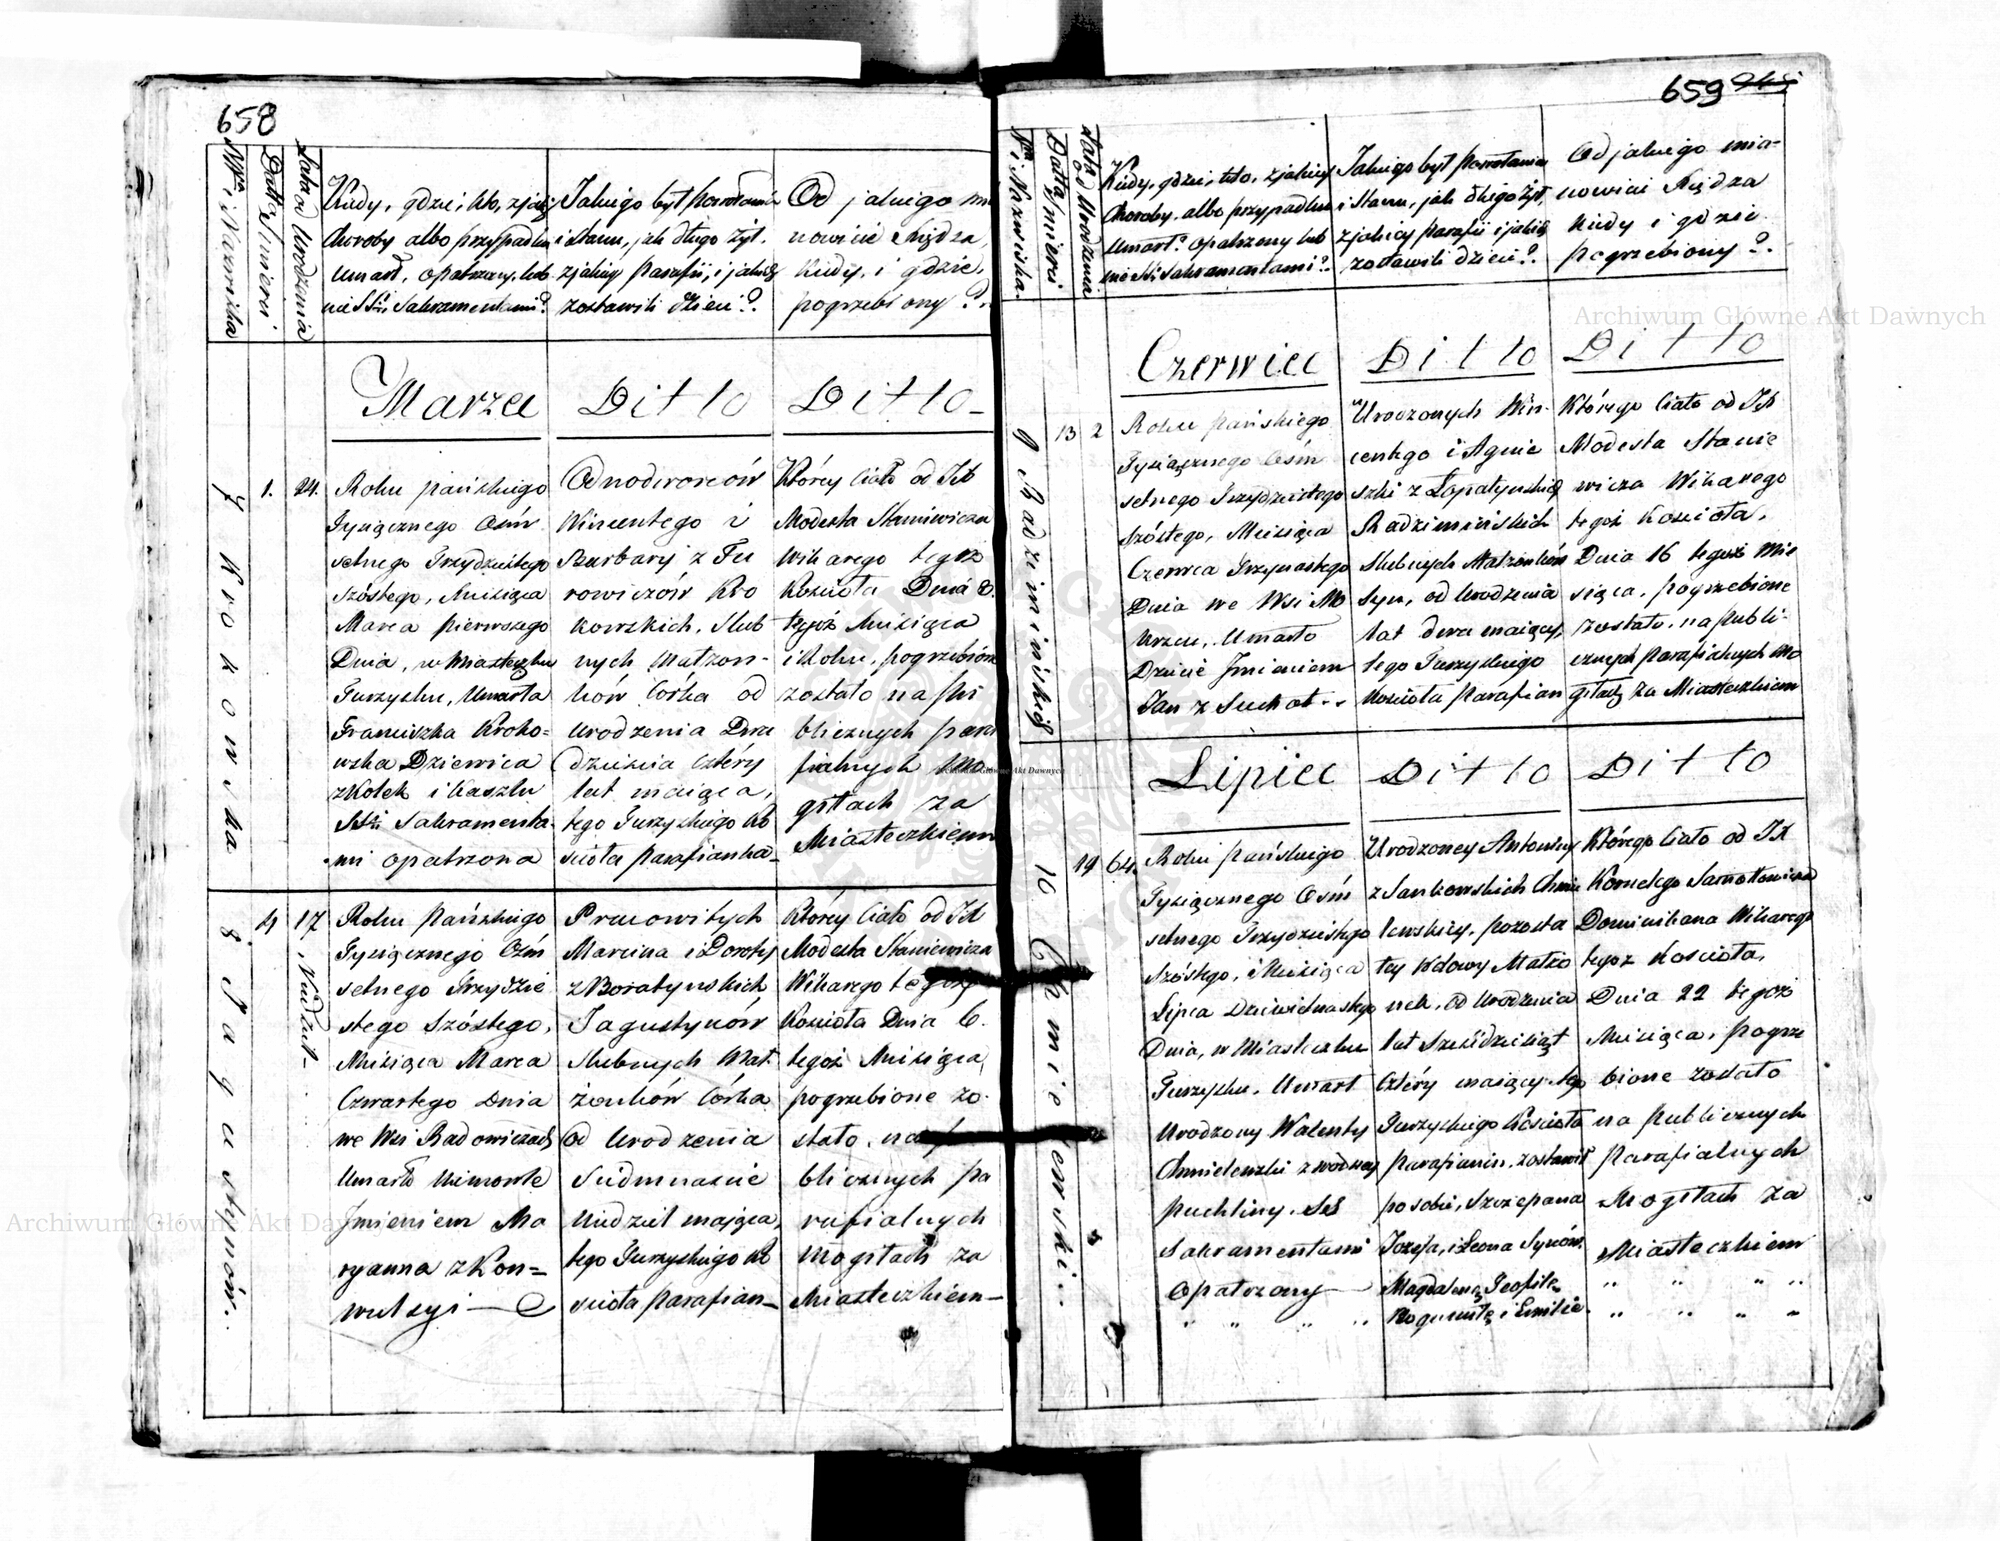 658
Nr i Nazwiska
Datta Smierci
Lata od Urodzenia
Kiedy, gdzie, kto, z jakiej
Choroby albo przypadku
umarł, opatrzony, lub
nie SSmi Sakramentami?
Jakiego był Powołania
i stanu, jak długo żył,
z jakiey Parafii, i jakie
zostawili dzieci?
Od jakiego mia
nowicie Xiędza,
kiedy, i gdzie,
pogrzebiony?
Marzec
Ditto
Ditto
7 Krokowska
1.
24.
Roku pańskiego
Tysiącznego Ośm
setnego Trzydziestego
szóstego, Miesiąca
Marca pierwszego
Dnia, w Miasteczku
Turzysku, Umarła
Franciszka Kroko=
wska Dziewica
z Kolek i Kaszlu
SSmi Sakramenta
mi opatrzona
Odnodworców
Wincentego i
Barbary z Fu
rowiczów Kro
kowskich, Slub
nych Małżon-
ków Córka od
Urodzenia Dwa
dzieścia Cztéry
lat maiąca,
tego Turzyskiego Ko
scioła parafianka
Którey Ciało od JX
Modesta Staniewicza
Wikarego tegoż
Kościoła Dnia 3.
tegoż Miesiąca
i Roku, pogrzebione
zostało na Pu
blicznych para
fialnych Mo
giłach za
Miasteczkiem
8 Jagustynów.
4
17 Niedziel
Roku Pańskiego
Tysiącznego Ośm
setnego Trzydzie
stego szóstego,
Miesiąca Marca
Czwartego Dnia
we Wsi Radowiczach
Umarło Niemowle
Jmieniem Ma
ryanna z Kon=
wulsyi
Pracowitych
Marcina i Doroty
z Boratynskich
Jagustynów
Slubnych Mał
żonków Córka
Od Urodzenia
Siedmnaście
Niedziel mająca,
tego Turzyskiego Ko
scioła parafian
Którey Ciało od JX
Modesta Staniewicza
Wikarego tegoż
Kościoła Dnia 6.
tegoż Miesiąca
pogrzebione zo-
stało, na pu
blicznych pa
rafialnych
Mogiłach za
Miasteczkiem
659
Nr i Nazwiska
Datta Smierci
Lata od Urodzenia
Kiedy, gdzie, kto, z jakiey
Choroby, albo przypadku
umarł? opatrzony lub
nie SSmi Sakramentami?
Jakiego był Powołania
i Stanu, jak długo żył,
z jakiey parafii i jakie
zostawili dzieci?
Od jakiego mia-
nowici Xiędza
kiedy i gdzie
pogrzebiony?
Czerwiec
Ditto
Ditto
9 Radziminskis
13
2
Roku pańskiego
Tysiącznego Ośm
setnego Trzydziestego
szóstego, Miesiąca
Czerwca Trzynastego
Dnia we Wsi Mo
Umarło
Dziecie Jmieniem
Jan z Suchot
Urodzonych Win-
centego i Agnie
szki z Łopatynskich
Radziminskich
Slubnych Małżonków
Syn, od Urodzenia
lat dwa maiący,
tego Turzyskiego
Kościoła Parafian
Którego Ciało od JX
Modesta Stanie
wicza Wikarego
tegoż Kościoła,
Dnia 16 tegoż Mie
siąca, pogrzebione
zostało, na Publi-
cznych parafialnych Mo
giłach za Miasteczkiem
Lipiec
Ditto
Ditto
10 Chmielewski
19
64.
Roku Pańskiego
Tysiącznego Ośm
setnego Trzydziestego
Szóstego, Miesiąca
Lipca Dziewietnastego
Dnia, w Miasteczku
Turzysku, Umarł
Urodzony Walenty
Chmielewski z wodney
puchliny. SS
Sakramentami
Opatrzony
Urodzoney Antoniny
z Jankowskich Chmie
lewskiey, pozosta
łey Wdowy Małżo
nek, od Urodzenia
lat Szescdziesiąt
Cztéry maiący tego
Turzyskiego Kościoła
Parafianin, zostawił
po sobie, Szczepana
Jozefa, i Leona Synów.
Magdalenę, Teofilę,
Rogumiłę i Emilię.
Którego Ciało od JX
Kornelego Samotowicza
Dominikana Wikarego
tegoż Kościoła,
Dnia 22 tegoż
Miesiąca, pogrze
bione zostało
na Publicznych
parafialnych
Mogiłach za
Miasteczkiem
Archiwum Główne Akt Dawnych
Archiwum Główne Akt Dawnych
Archiwum Główne Akt Dawnych